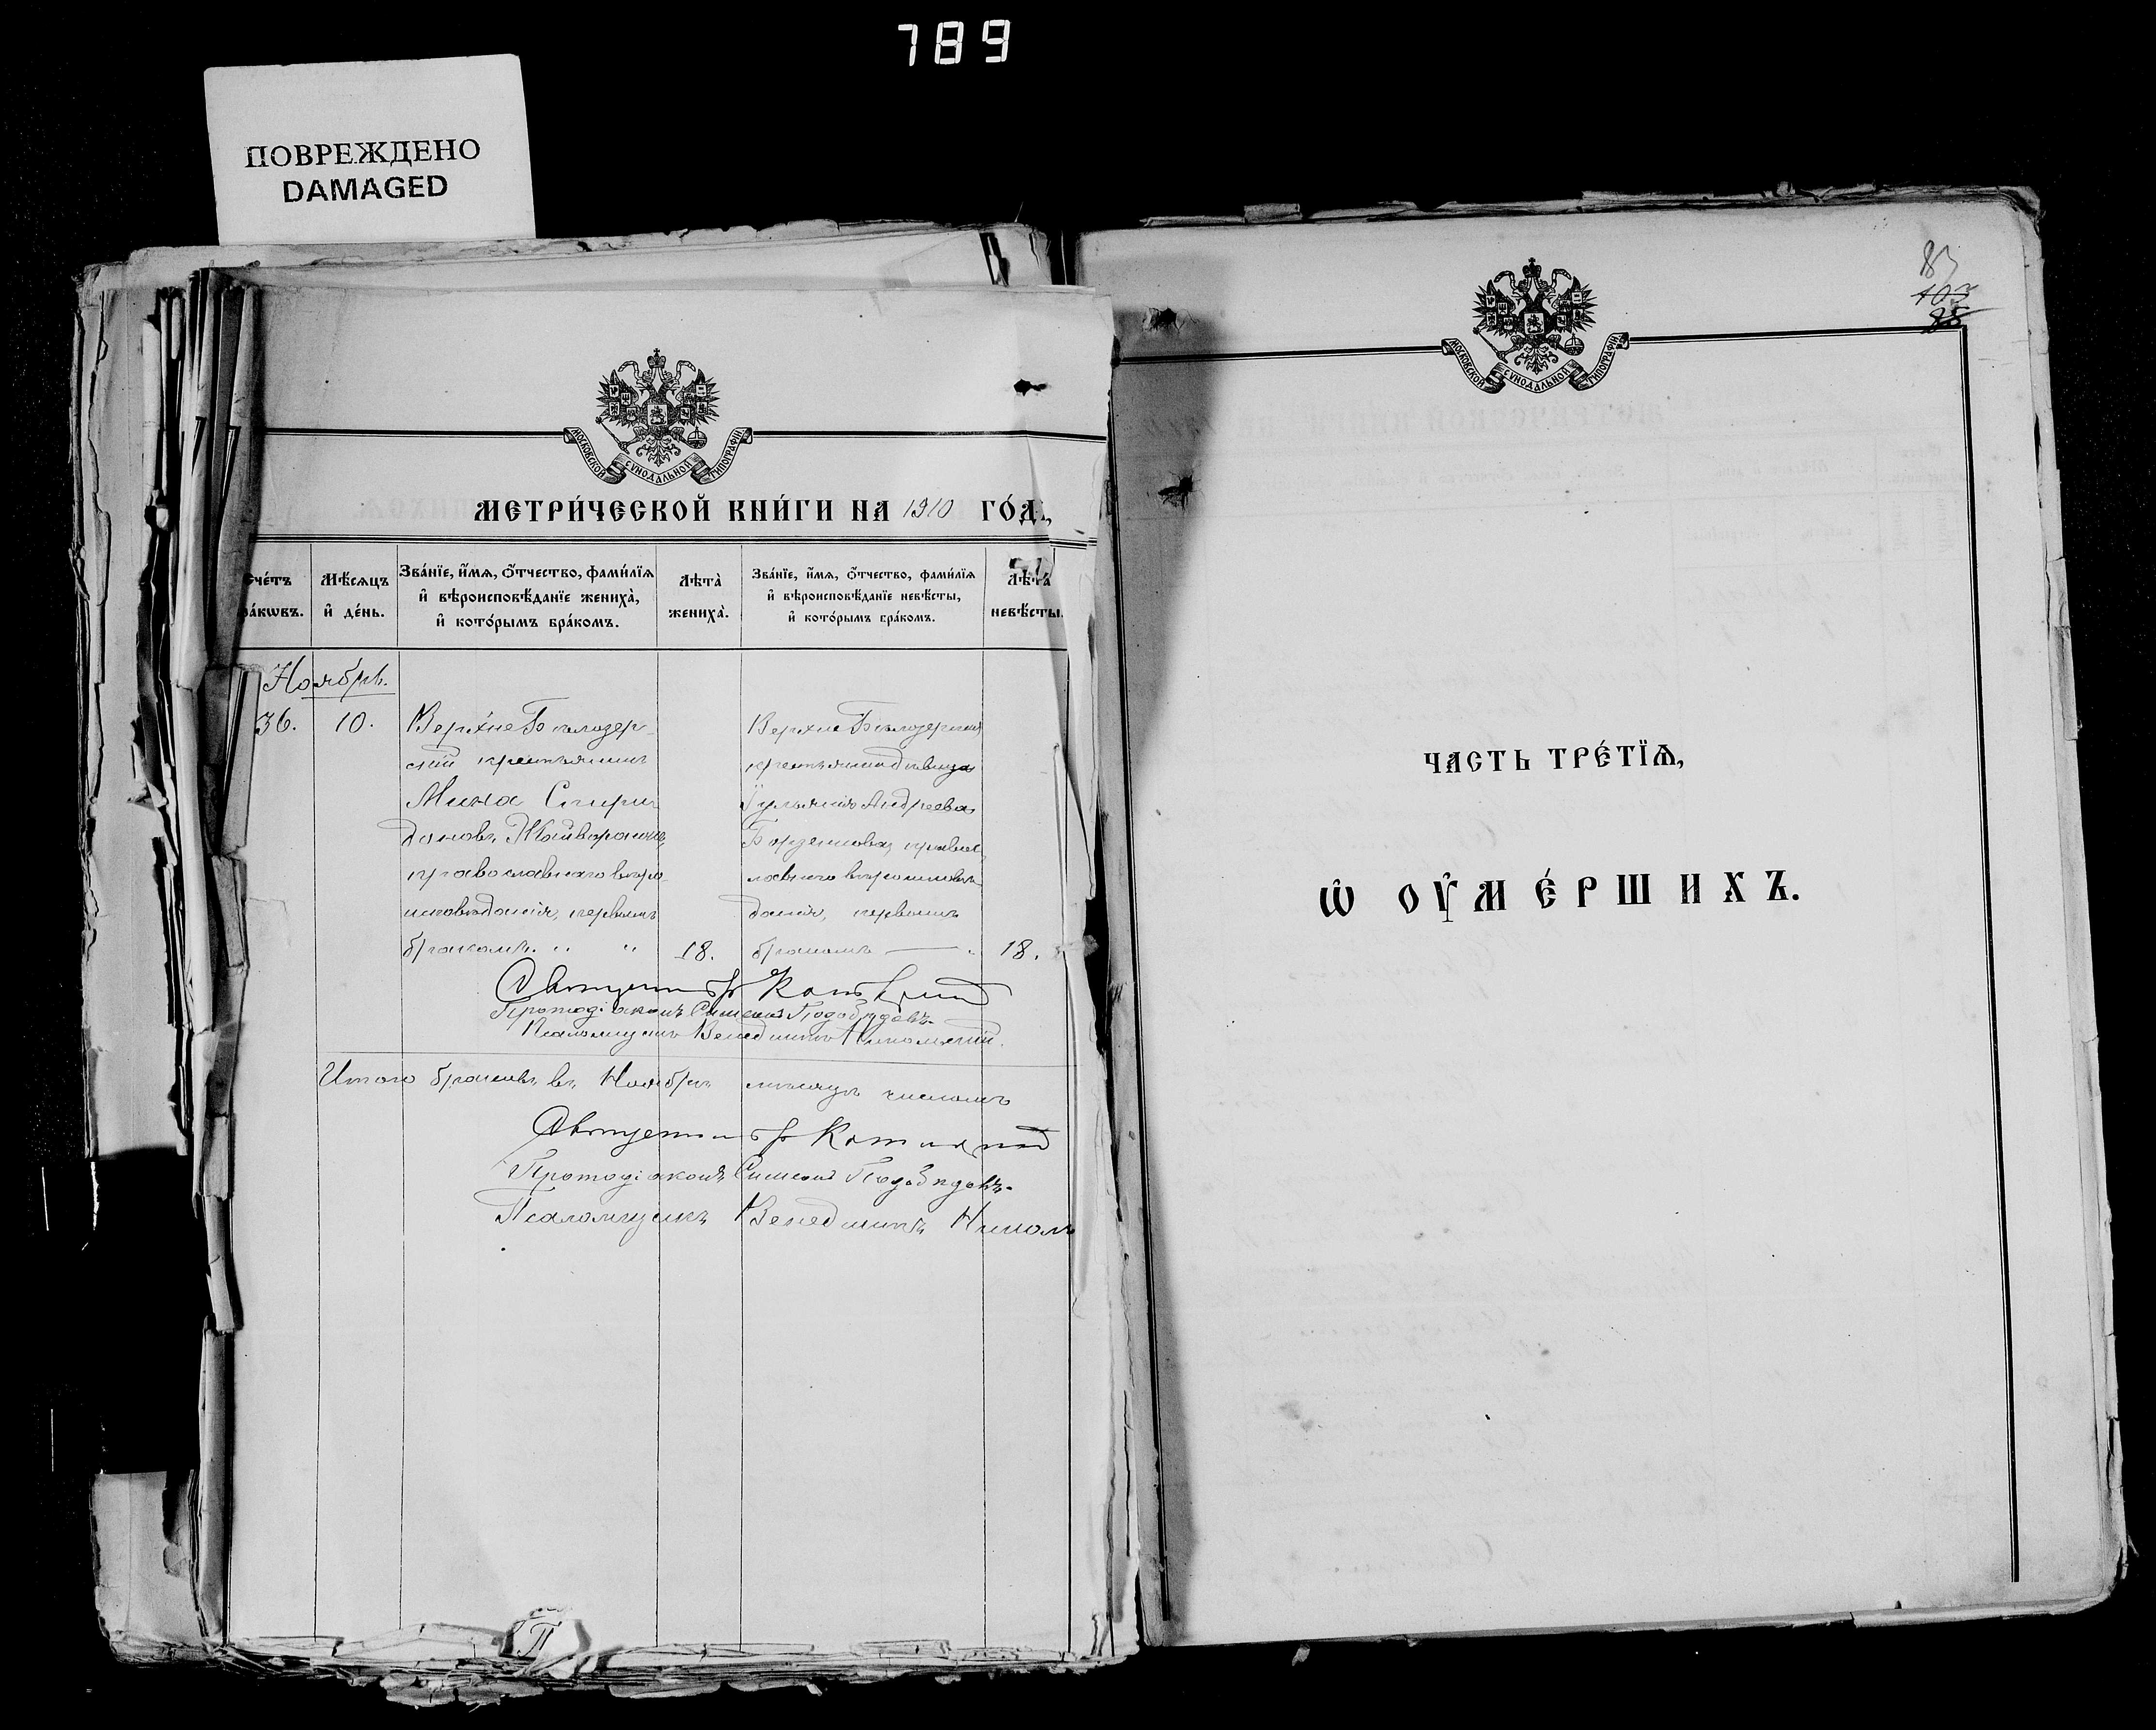 789
ПОВРЕЖДЕНО
DAMAGED
МОСКОВСКОЙ СѴНОДАЛЬНОЙ ТИПОГРАФІИ
МЕТРИ́ЧЕСКОЙ КНИ́ГИ НА 1910 ГО́Д
Сче́тъ бра́кѡвъ.
Мѣ́сяцъ и҆ де́нь.
Зва́нїе, и҆́мѧ, ѻ҆́тчество, фами́лїѧ и҆ вѣроисповѣ́данїе жениха̀, и҆ кото́рымъ бра́комъ.
Лѣта̀ жениха̀.
Зва́нїе, и҆́мѧ, ѻ҆́тчество, фами́лїѧ и҆ вѣроисповѣ́данїе невѣ́сты, и҆ кото́рымъ бра́комъ.
Лѣта̀ невѣ́сты.
Ноябрь.
36.
10.
Верхне Бѣлозер
скій крестьянинъ
Мина Спири
доновъ Жайворонокъ,
православнаго вѣро
исповѣданія, первымъ
бракомъ. " "
18.
Верхне Бѣлозерская
крестьянка дѣвица
Іульянія Андреева
православнаго вѣроисповѣ
данія, первымъ
бракомъ — "
18.
Протодіаконъ Симеонъ
Псаломщикъ Венедиктъ
Итого браковъ въ Ноябрѣ мѣсяцѣ числомъ
Протодіаконъ Симеонъ
Псаломщикъ Венедиктъ
МОСКОВСКОЙ СѴНОДАЛЬНОЙ ТИПОГРАФІИ
ЧАСТЬ ТРЕ́ТЇѦ,
Ѡ҆ ОУ҆МЕ́РШИХЪ.